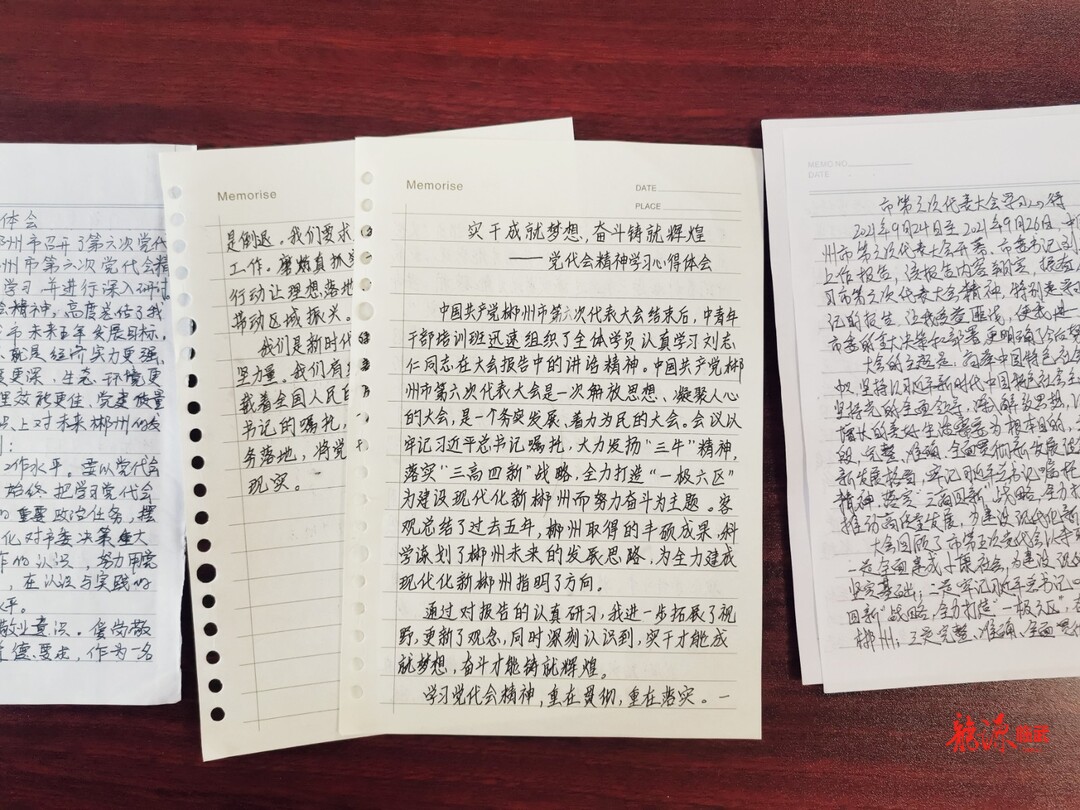 体会
郴州市召开了第六次党代
州市第六次党代会精
学习,并进行深入研讨
会精神,高度卷住了我
市未来五年发展目标,
就是经济实力更强、
度更深、生态环境更
理效能更佳、党建质量
以上对未来郴州的发
工作水平。要以党代会
始终把学习党代会
重要政治任务,摆
化对市委决策重大
作的认识,努力用党
,在认识与实践的
水平。
敬业意识。爱岗敬
道德要求,作为一名
Memorise
是倒退。我们要求
工作。磨炼真抓实
行动让理想落地
带动区域振兴。
我们是新时代
坚力量。我们有
载着全国人民的
书记的嘱托,
务落地,将党
现实。
Memorise
DATE
PLACE
实干成就梦想,奋斗铸就辉煌
——党代会精神学习心得体会
中国共产党郴州市第六次代表大会结束后,中青年
干部培训班迅速组织了全体学员认真学习刘志
仁同志在大会报告中的讲话精神。中国共产党郴
州市第六次代表大会是一次解放思想、凝聚人心
的大会,是一个务实发展、着力为民的大会。会议以
牢记习近平总书记嘱托,大力发扬“三牛”精神,
落实“三高四新”战略,全力打造“一极六区”
为建设现代化新郴州而努力奋斗为主题。客
观总结了过去五年,郴州取得的丰硕成果,科
学谋划了郴州未来的发展思路,为全力建成
现代化新郴州指明了方向。
通过对报告的认真研习,我进一步拓展了视
野,更新了观念,同时深刻认识到,实干才能成
就梦想,奋斗才能铸就辉煌。
学习党代会精神,重在贯彻,重在落实。一
MEMO NO.
DATE
市第六次代表大会学习心得
2021年9月24日至2021年9月26日,郴
州市第六次代表大会开幕,市委书记刘
上作报告,该报告内容翔实,
习市第六次代表大会精神,特别是
记的报告,
市委重大决策和部署更明确
大会的主题是:高举中国特色社会
帜,坚持以习近平新时代中国特色社会主
坚持党的全面领导,
增长的美好生活需要为根本目的,
段,完整、准确、全面贯彻新发展理
新发展格局,牢记习近平总书记嘱托
精神,落实“三高四新”战略,全力打
推动高质量发展,为建设现代化新
大会回顾了市第五次党代会以来
一是全面建成小康社会,为建设现代
坚实基础;二是牢记习近平总书记
四新”战略,全力打造“一极六区”,
郴州;三是完整、准确、全面贯彻
龙源